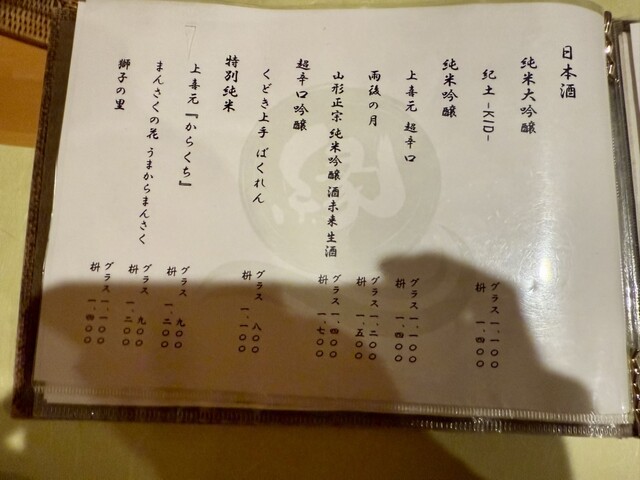 日本酒
純米大吟醸
紀土-KID-
グラス 一、一〇〇
枡 一、四〇〇
純米吟醸
上喜元 超辛口
グラス 一、一〇〇
枡 一、四〇〇
雨後の月
グラス 一、二〇〇
枡 一、五〇〇
山形正宗 純米吟醸 酒未来生酒
グラス 一、四〇〇
枡 一、七〇〇
超辛口吟醸
くどき上手 ばくれん
グラス 八〇〇
枡 一、一〇〇
特別純米
上喜元『からくち』
グラス 九〇〇
枡 一、二〇〇
まんさくの花 うまからまんさく
グラス 九〇〇
枡 一、二〇〇
獅子の里
グラス 一、一〇〇
枡 一、四〇〇